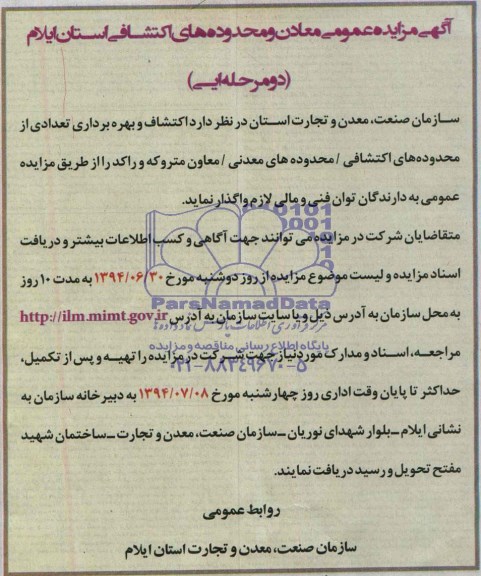 آگهی مزایده عمومی معادن و محدوده های اکتشافی استان ایلام
(دو مرحله ایی)
سازمان صنعت، معدن و تجارت استان در نظر دارد اکتشاف و بهره برداری تعدادی از
محدوده‌های اکتشافی / محدوده های معدنی / معاون متروکه و راکد را از طریق مزایده
عمومی به دارندگان توان فنی و مالی لازم واگذار نماید.
متقاضایان شرکت در مزایده می توانند جهت آگاهی و کسب اطلاعات بیشتر و دریافت
اسناد مزایده و لیست موضوع مزایده از روز دوشنبه مورخ ۱۳۹۴/۰۶/۳۰ به مدت ۱۰ روز
ParsNamadData
به محل سازمان به آدرس ذیل و یا سایت سازمان به آدرس http://ilm.mimt.gov.ir
پایگاه اطلاع رسانی مناقصه و مزایده
مراجعه، اسناد و مدارک مورد نیاز جهت شرکت در مزایده را تهیه و پس از تکمیل،
۰۲۱-۸۸۳۴۹۶۷۰-۵
حداکثر تا پایان وقت اداری روز چهارشنبه مورخ ۱۳۹۴/۰۷/۰۸ به دبیرخانه سازمان به
نشانی ایلام ـ بلوار شهدای نوریان ـ سازمان صنعت، معدن و تجارت ـ ساختمان شهید
مفتح تحویل و رسید دریافت نمایند.
روابط عمومی
سازمان صنعت، معدن و تجارت استان ایلام